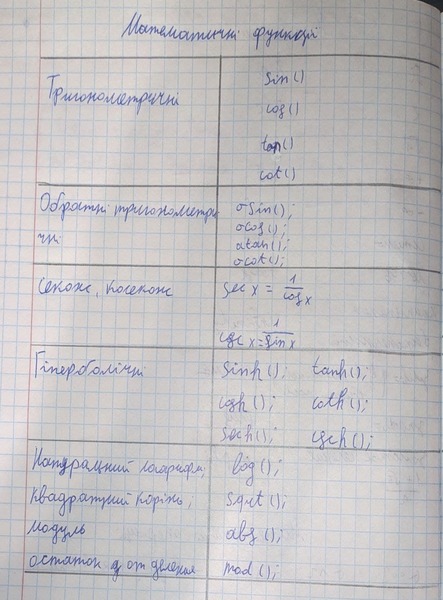 Математичні функції
Тригонометричні
sin()
cos()
tan()
cot()
Обратні тригонометри
чні
asin();
acos();
atan();
acot();
Секонс, косеконс
sec x = 1/cos x
csc x = 1/sin x
Гіперболічні
sinh(); tanh();
cosh(); coth();
sech(); csch();
Натуральний логарифм; log();
Квадратний корінь; sqrt();
модуль abs();
остаток от деления mod();